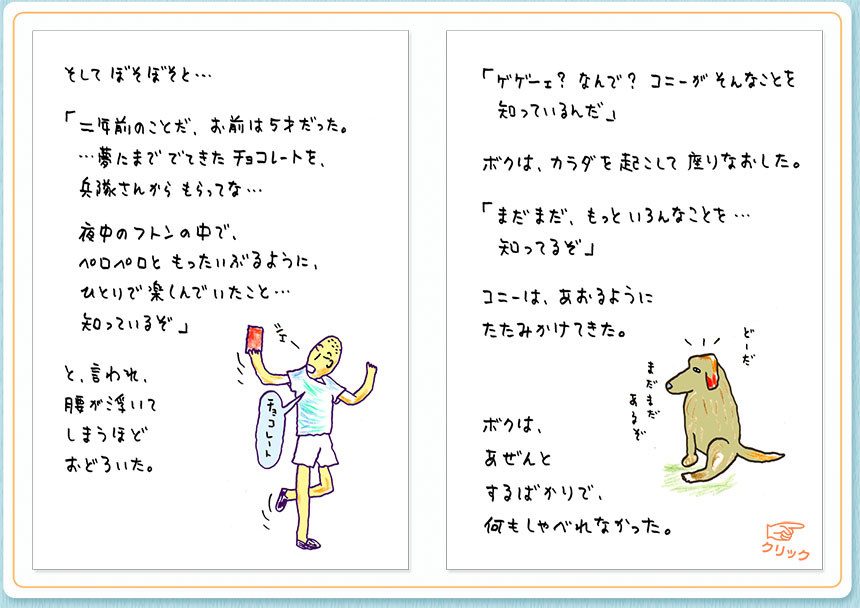 そして ぼそぼそと…
「二年前のことだ、お前は5才だった。
…夢にまで でてきた チョコレートを、
兵隊さんから もらってな…
夜中のフトンの中で、
ペロペロと もったいぶるように、
ひとりで楽しんでいたこと…
知っているぞ」
と、言われ、
腰が浮いて
しまうほど
おどろいた。
ジェー
チョコレート
「ゲゲーェ? なんで? コニーが そんなことを
知っているんだ」
ボクは、カラダを起こして 座りなおした。
「まだまだ、もっと いろんなことを…
知ってるぞ」
コニーは、あおるように
たたみかけてきた。
どーだ
まだまだ
あるぞ
ボクは、
あぜんと
するばかりで、
何もしゃべれなかった。
クリック